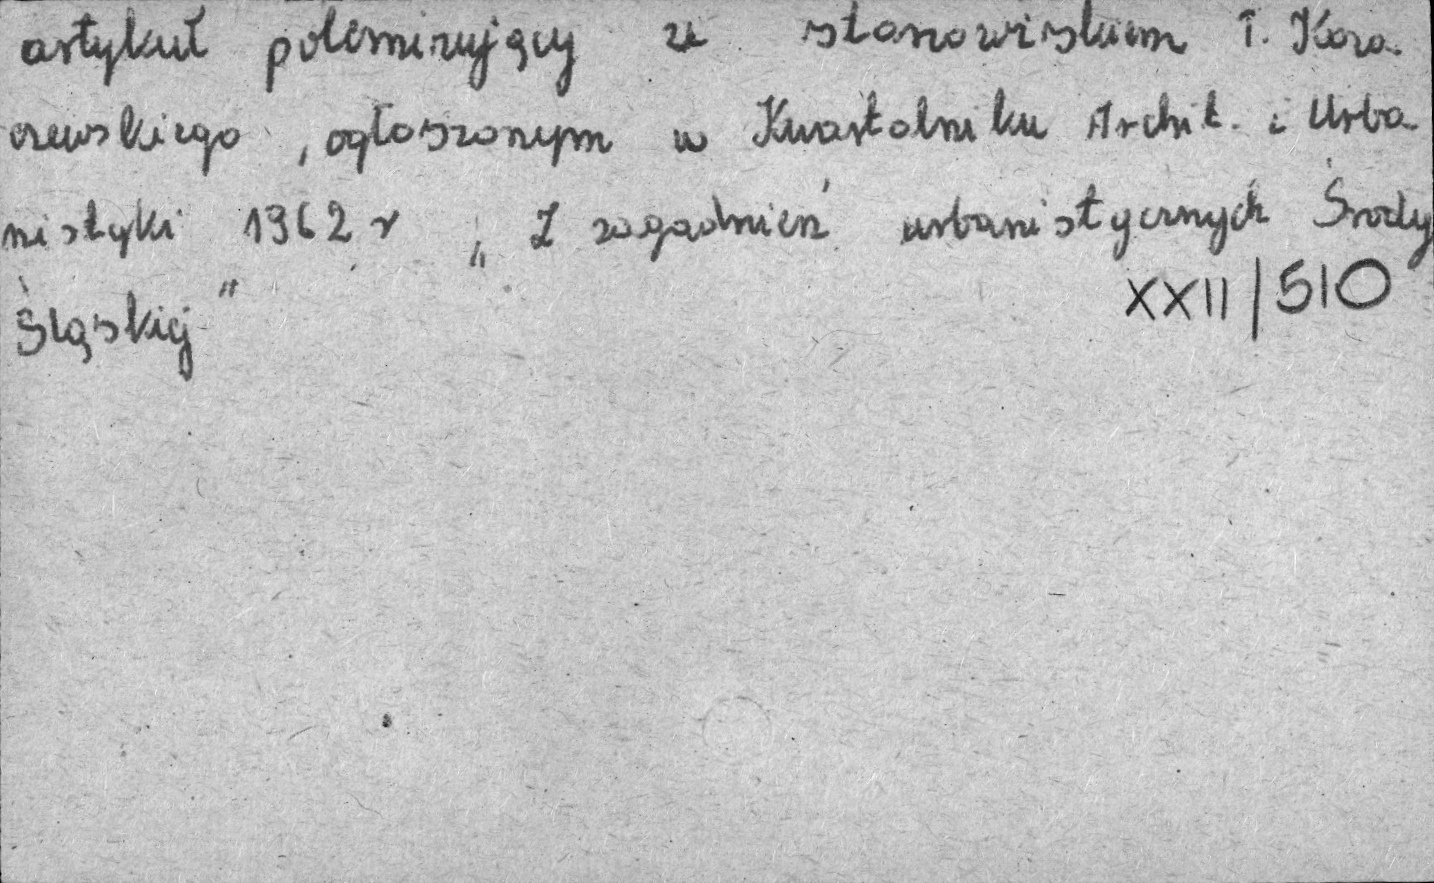 artykuł polemizujący ze stanowiskiem T. Koza-
czewskiego, ogłoszonym w Kwartalniku Archit. i Urba-
nistyki 1962 r „Z zagadnień urbanistycznych Środy
Śląskiej"
XXII/510